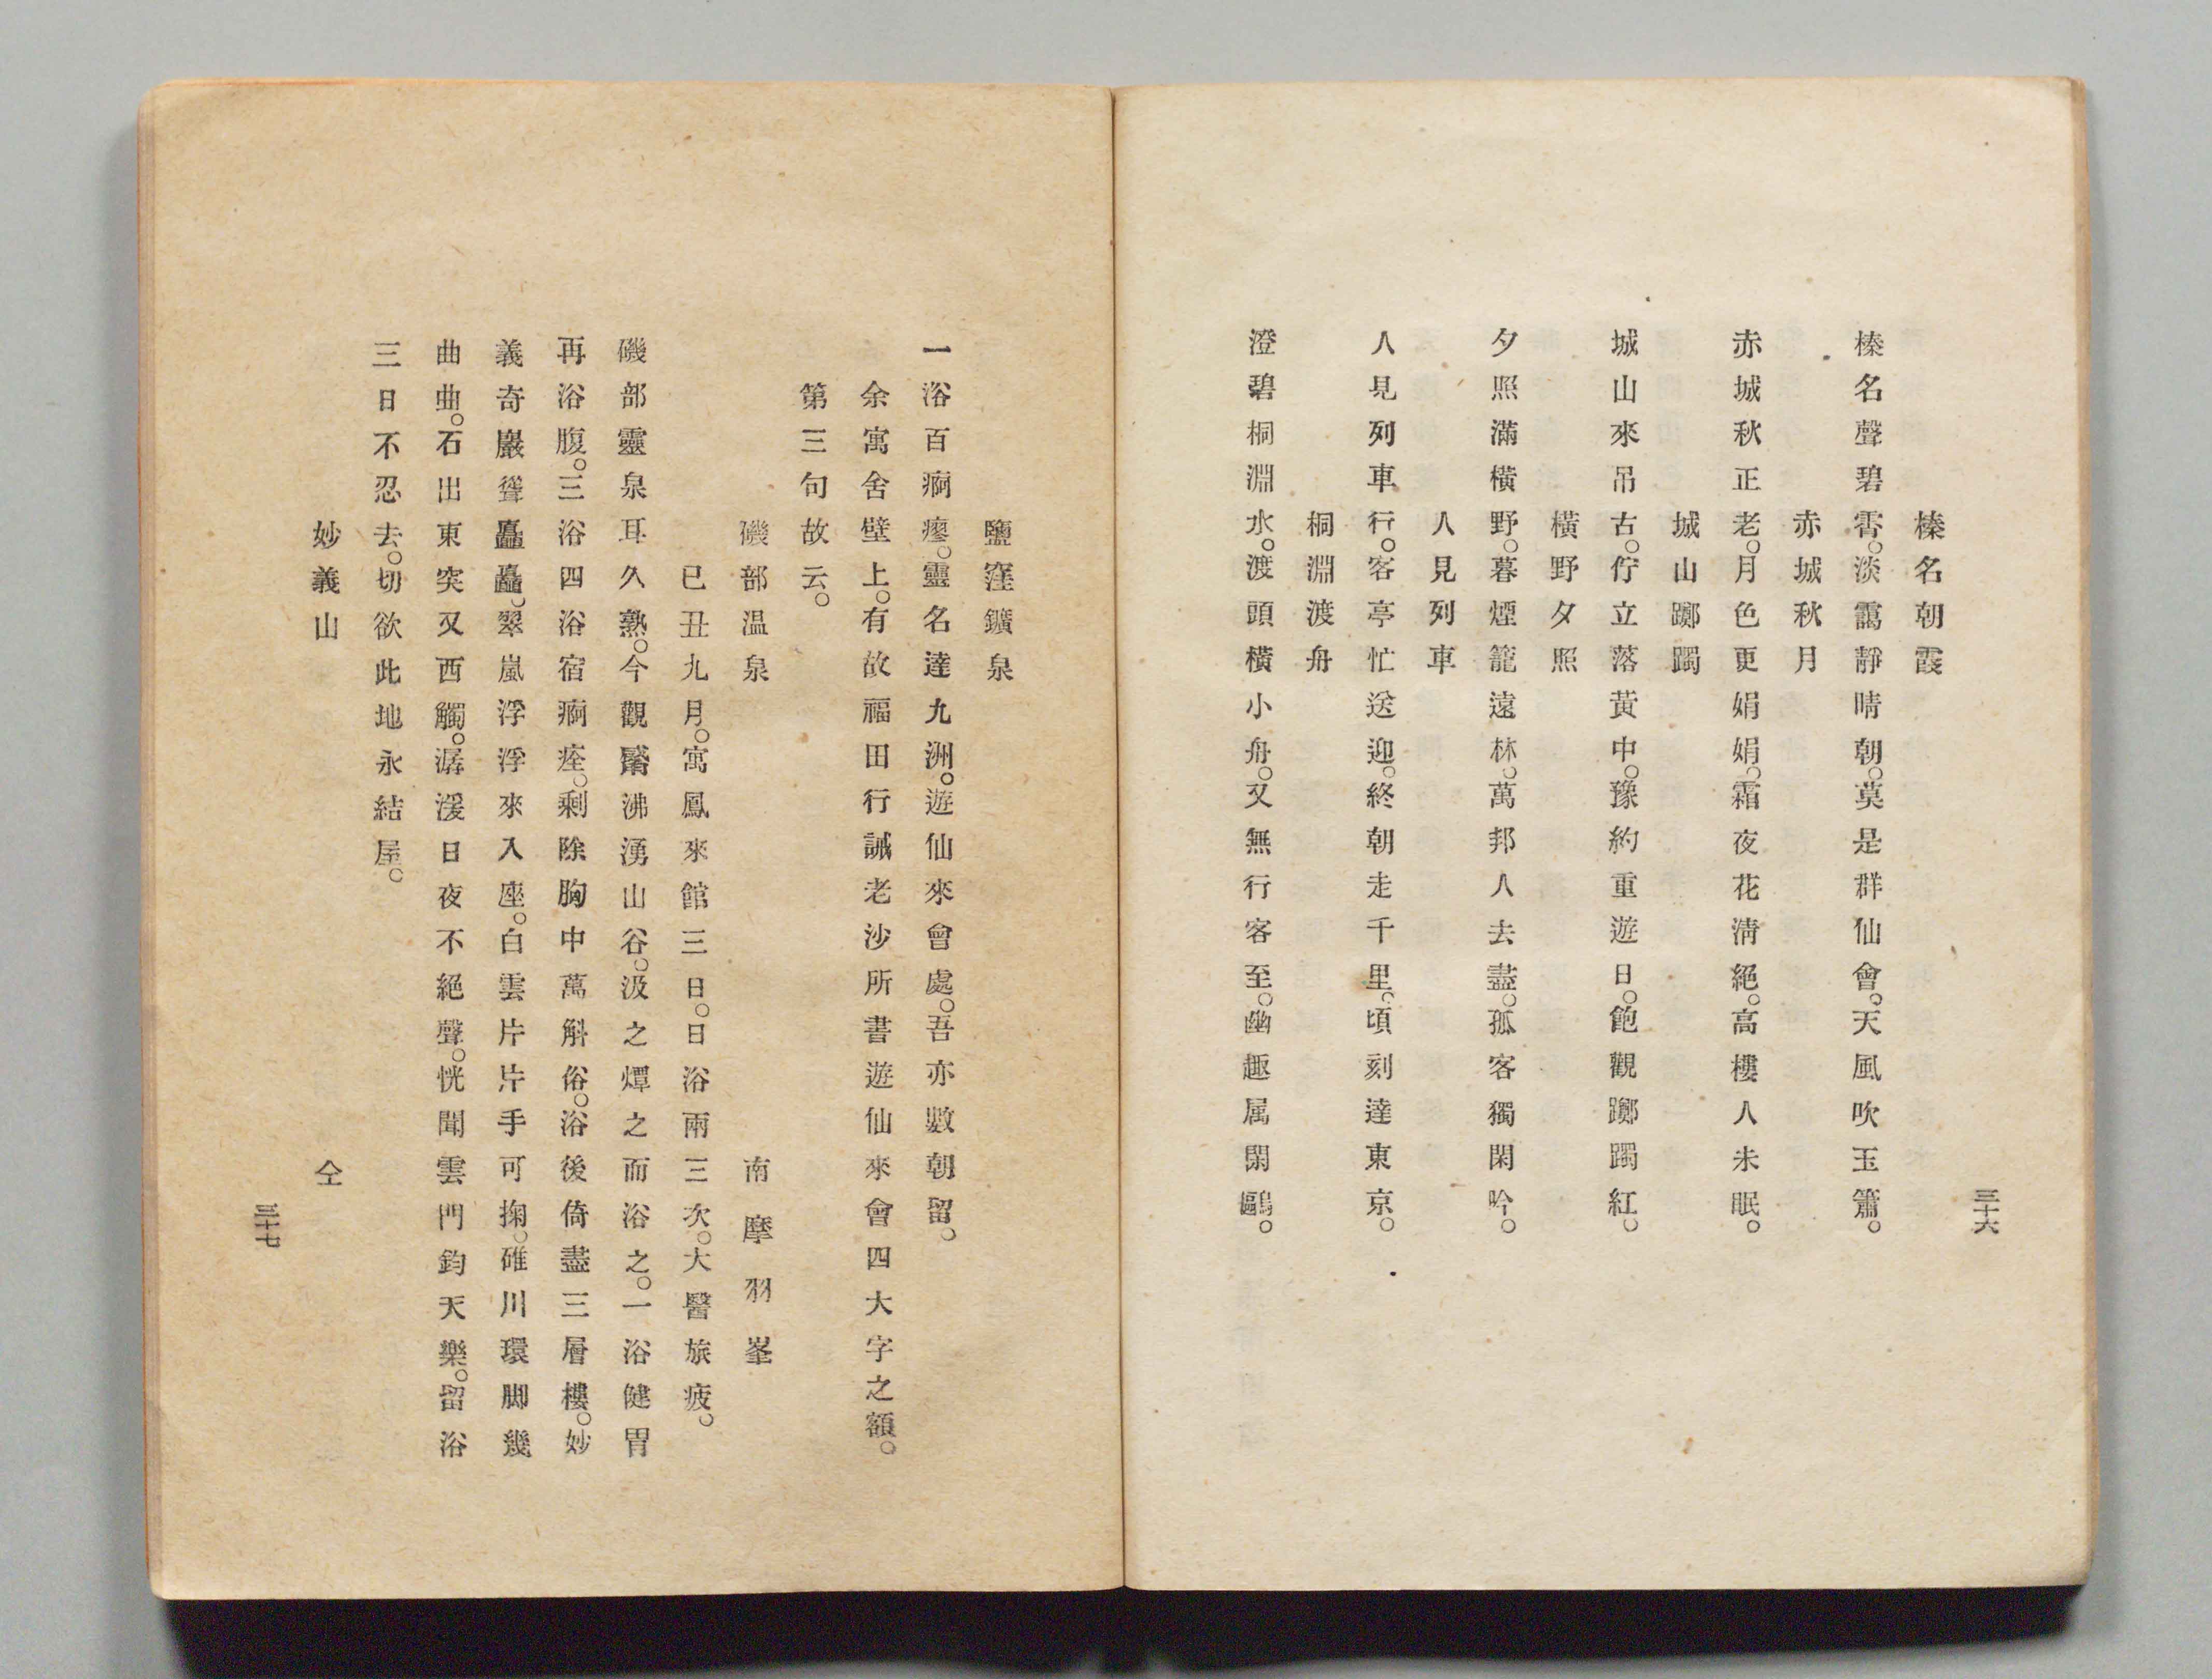 三十六
榛名朝霞
榛名聲碧霄。淡靄靜晴朝。莫是群仙會。天風吹玉簫。
赤城秋月
赤城秋正老。月色更娟娟。霜夜花淸絕。高樓人未眠。
城山躑躅
城山來吊古。佇立落黃中。豫約重遊日。飽觀躑躅紅。
橫野夕照
夕照滿橫野。暮煙籠遠林。萬邦人去盡。孤客獨閑吟。
人見列車
人見列車行。客亭忙送迎。終朝走千里。頃刻達東京。
桐淵渡舟
澄碧桐淵水。渡頭橫小舟。又無行客至。幽趣属閑鷗。
鹽窪鑛泉
一浴百痾瘳。靈名達九洲。遊仙來會處。吾亦數朝留。
余寓舍壁上。有故福田行誡老沙所書遊仙來會四大字之額。
第三句故云。
磯部温泉 南摩羽峯
已丑九月。寓鳳來館三日。日浴兩三次。大醫旅疲。
磯部靈泉耳久熟。今觀觱沸湧山谷。汲之燂之而浴之。一浴健胃
再浴腹。三浴四浴宿痾痊。剩除胸中萬斛俗。浴後倚盡三層樓。妙
義奇巖聳矗矗。翠嵐浮浮來入座。白雲片片手可掬。碓川環脚幾
曲曲。石出東突又西觸。潺湲日夜不絕聲。恍聞雲門鈞天樂。留浴
三日不忍去。切欲此地永結屋。
妙義山 仝
三十七